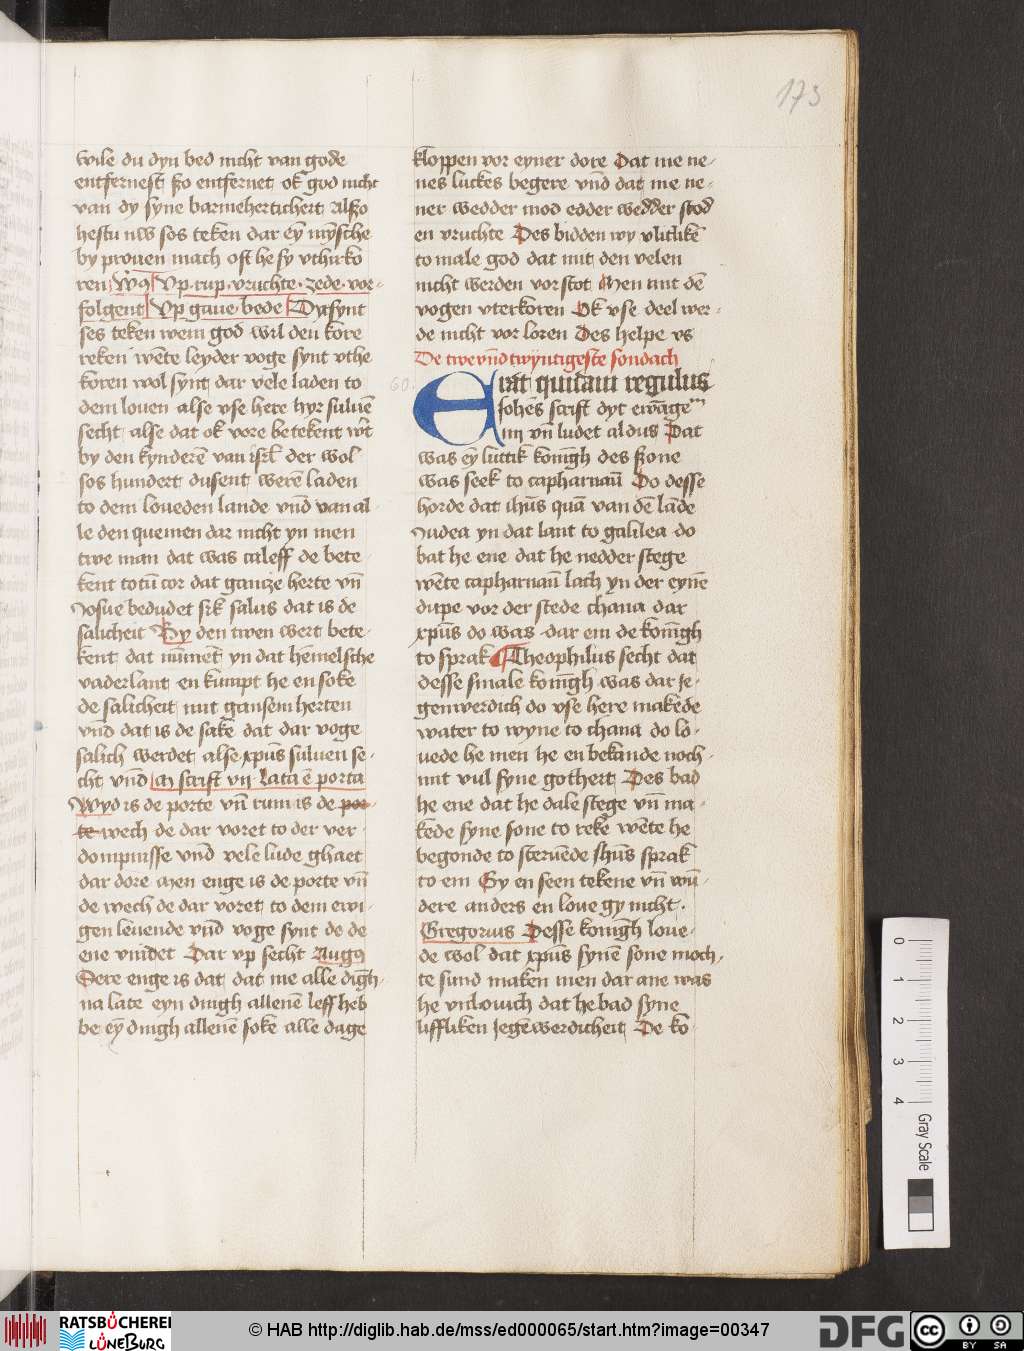 173
wile du dyn bed nicht van gode
entfernest szo entfernet ok god nicht
van dy syne barmehertichert Alszo
hestu nw sos teken dar ey mẏsche
by prouen mach oft he sy vthirko
ren Vp rup vruchte zede vor-
folgent Vp gaue bede Dyt synt
ses teken wem god wil den kore
reken wēte leyder voge synt vthe
koren wol synt dar vele laden to
dem louen alse vse here hyr suluē
secht alse dat ok vore betekent
by den kynderē van isrl der wol
sos hundert dusent werē laden
to dem loueden lande vnd van al-
le den quemen dar nicht yn men
twe man dat was caleff de bete-
kent totū cor dat gantze herte vn̄
Josue bedudet salus dat is de
salicheit By den twen wert bete-
kent dat nūmēt yn dat hēmelsche
vaderlant en kumpt he en soke
de salicheit mit gansem herten
vnd dat is de sake dat dar voge
salich werdet alse xp̄us suluen se-
cht vnd scrift vn Lata ē porta
Wyd is de porte vn̄ rum is de por-
te wech de dar voret to der ver-
dompnisse vnd vele lude ghaet
dar dore Men enge is de porte vn̄
de wech de dar voret to dem ewi-
gen leuende vnd voge synt de de
ene vindet Dar vp secht Augꝰ
Sere enge is dat dat me alle digh-
na late eyn dingh allenē leff heb
be eȳ dingh allenē soke alle dage
kloppen vor eyner dore Dat me ne-
nes luckes begere vnd dat me ne-
ner wedder mod edder wedder stod
en vruchte Des bidden wy vlitlikē
to male god dat mit den velen
nicht werden vor stot Men mit dē
vogen vterkoren Ok vse deel wer-
de nicht vor loren Des helpe vs
De twe vnd twyntigeste sondach
60. Erat quidam regulus
Johēs scrift dyt ewāge
vn̄ ludet aldus Dat
was eȳ luttik konīgh des szone
was seek to capharnaū Do desse
horde dat ihūs quā van dē lāde
Judea yn dat lant to galilea do
bat he ene dat he nedder stege
wēte capharnaū lach yn der eynē
dupe vor der stede chana dar
xp̄us do was dar em de konīgh
to sprak Theophilus secht dat
desse smale konīgh was dar je-
genwerdich do vse here makede
water to wyne to chana do lo-
uede he men he en bekande noch
nit vul syne gotheit Des bad
he ene dat he dale stege vn̄ ma-
kede syne sone to rekē wēte he
begonde to steruēde Ihūs sprak
to em Gy en seen tekene vn̄ wū-
dere anders en loue gy nicht.
Gregorius Desse konīgh loue-
de wol dat xp̄us synē sone moch-
te sund maken men dar ane was
he vnlouich dat he bad syne
liffliken jegēwerdicheit De ko-
0
1
2
3
4
Gray Scale
RATSBÜCHEREI
LÜNEBURG
© HAB http://diglib.hab.de/mss/ed000065/start.htm?image=00347
DFG
cc
BY SA